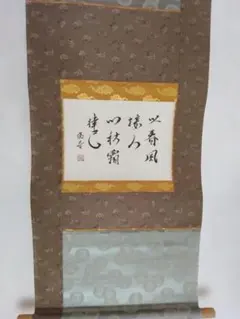 以春風
接人
以秋霜
律己